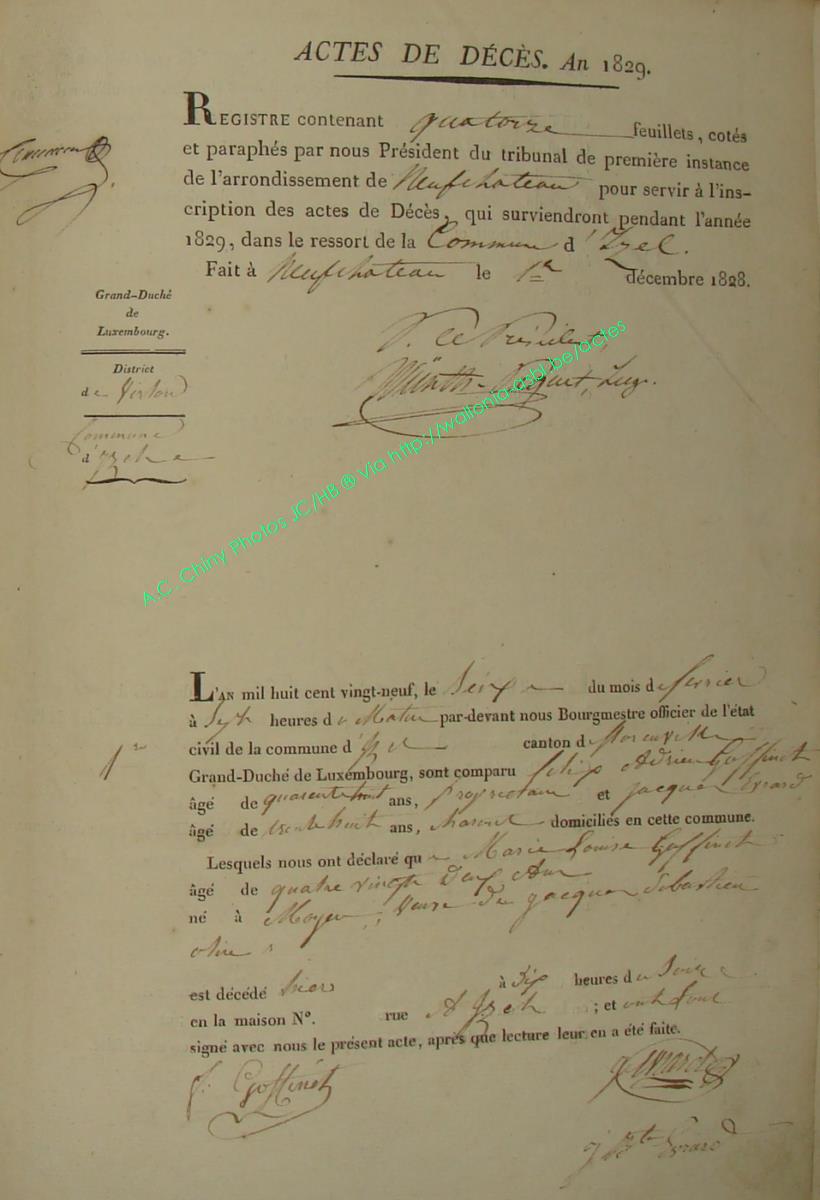 ACTES DE DÉCÈS. An 1829.
REGISTRE contenant quatorze feuillets, cotés
et paraphés par nous Président du tribunal de première instance
de l'arrondissement de Neufchateau pour servir à l'ins-
cription des actes de Décès, qui surviendront pendant l'année
1829, dans le ressort de la Commune d'Izel.
Fait à Neufchateau le 1er décembre 1828.
Grand-Duché
de
Luxembourg.
District
de Virton
Commune
d'Izel
P. le Président,
Juge.
A.C. Chiny Photos JC/HB ® Via http://wallonia-asbl.be/actes
1er
L'AN mil huit cent vingt-neuf, le Seize du mois de fevrier
à Sept heures du Matin par-devant nous Bourgmestre officier de l'état
civil de la commune d'Izel canton de florenville
Grand-Duché de Luxembourg, sont comparu Adrien Goffinet
âgé de quarente huit ans, propriétaire et jacques Evrard
âgé de trente huit ans, domiciliés en cette commune.
Lesquels nous ont déclaré que Marie Louise Goffinet
âgé de quatre vingts deux Ans
né à Moyen, veuve de jacques Sebastien
est décédé hier à Six heures du Soir
en la maison No. rue A Izel ; et ont tous
signé avec nous le présent acte, après que lecture leur en a été faite.
f. Goffinet
J Evrard
J Bte Evrard